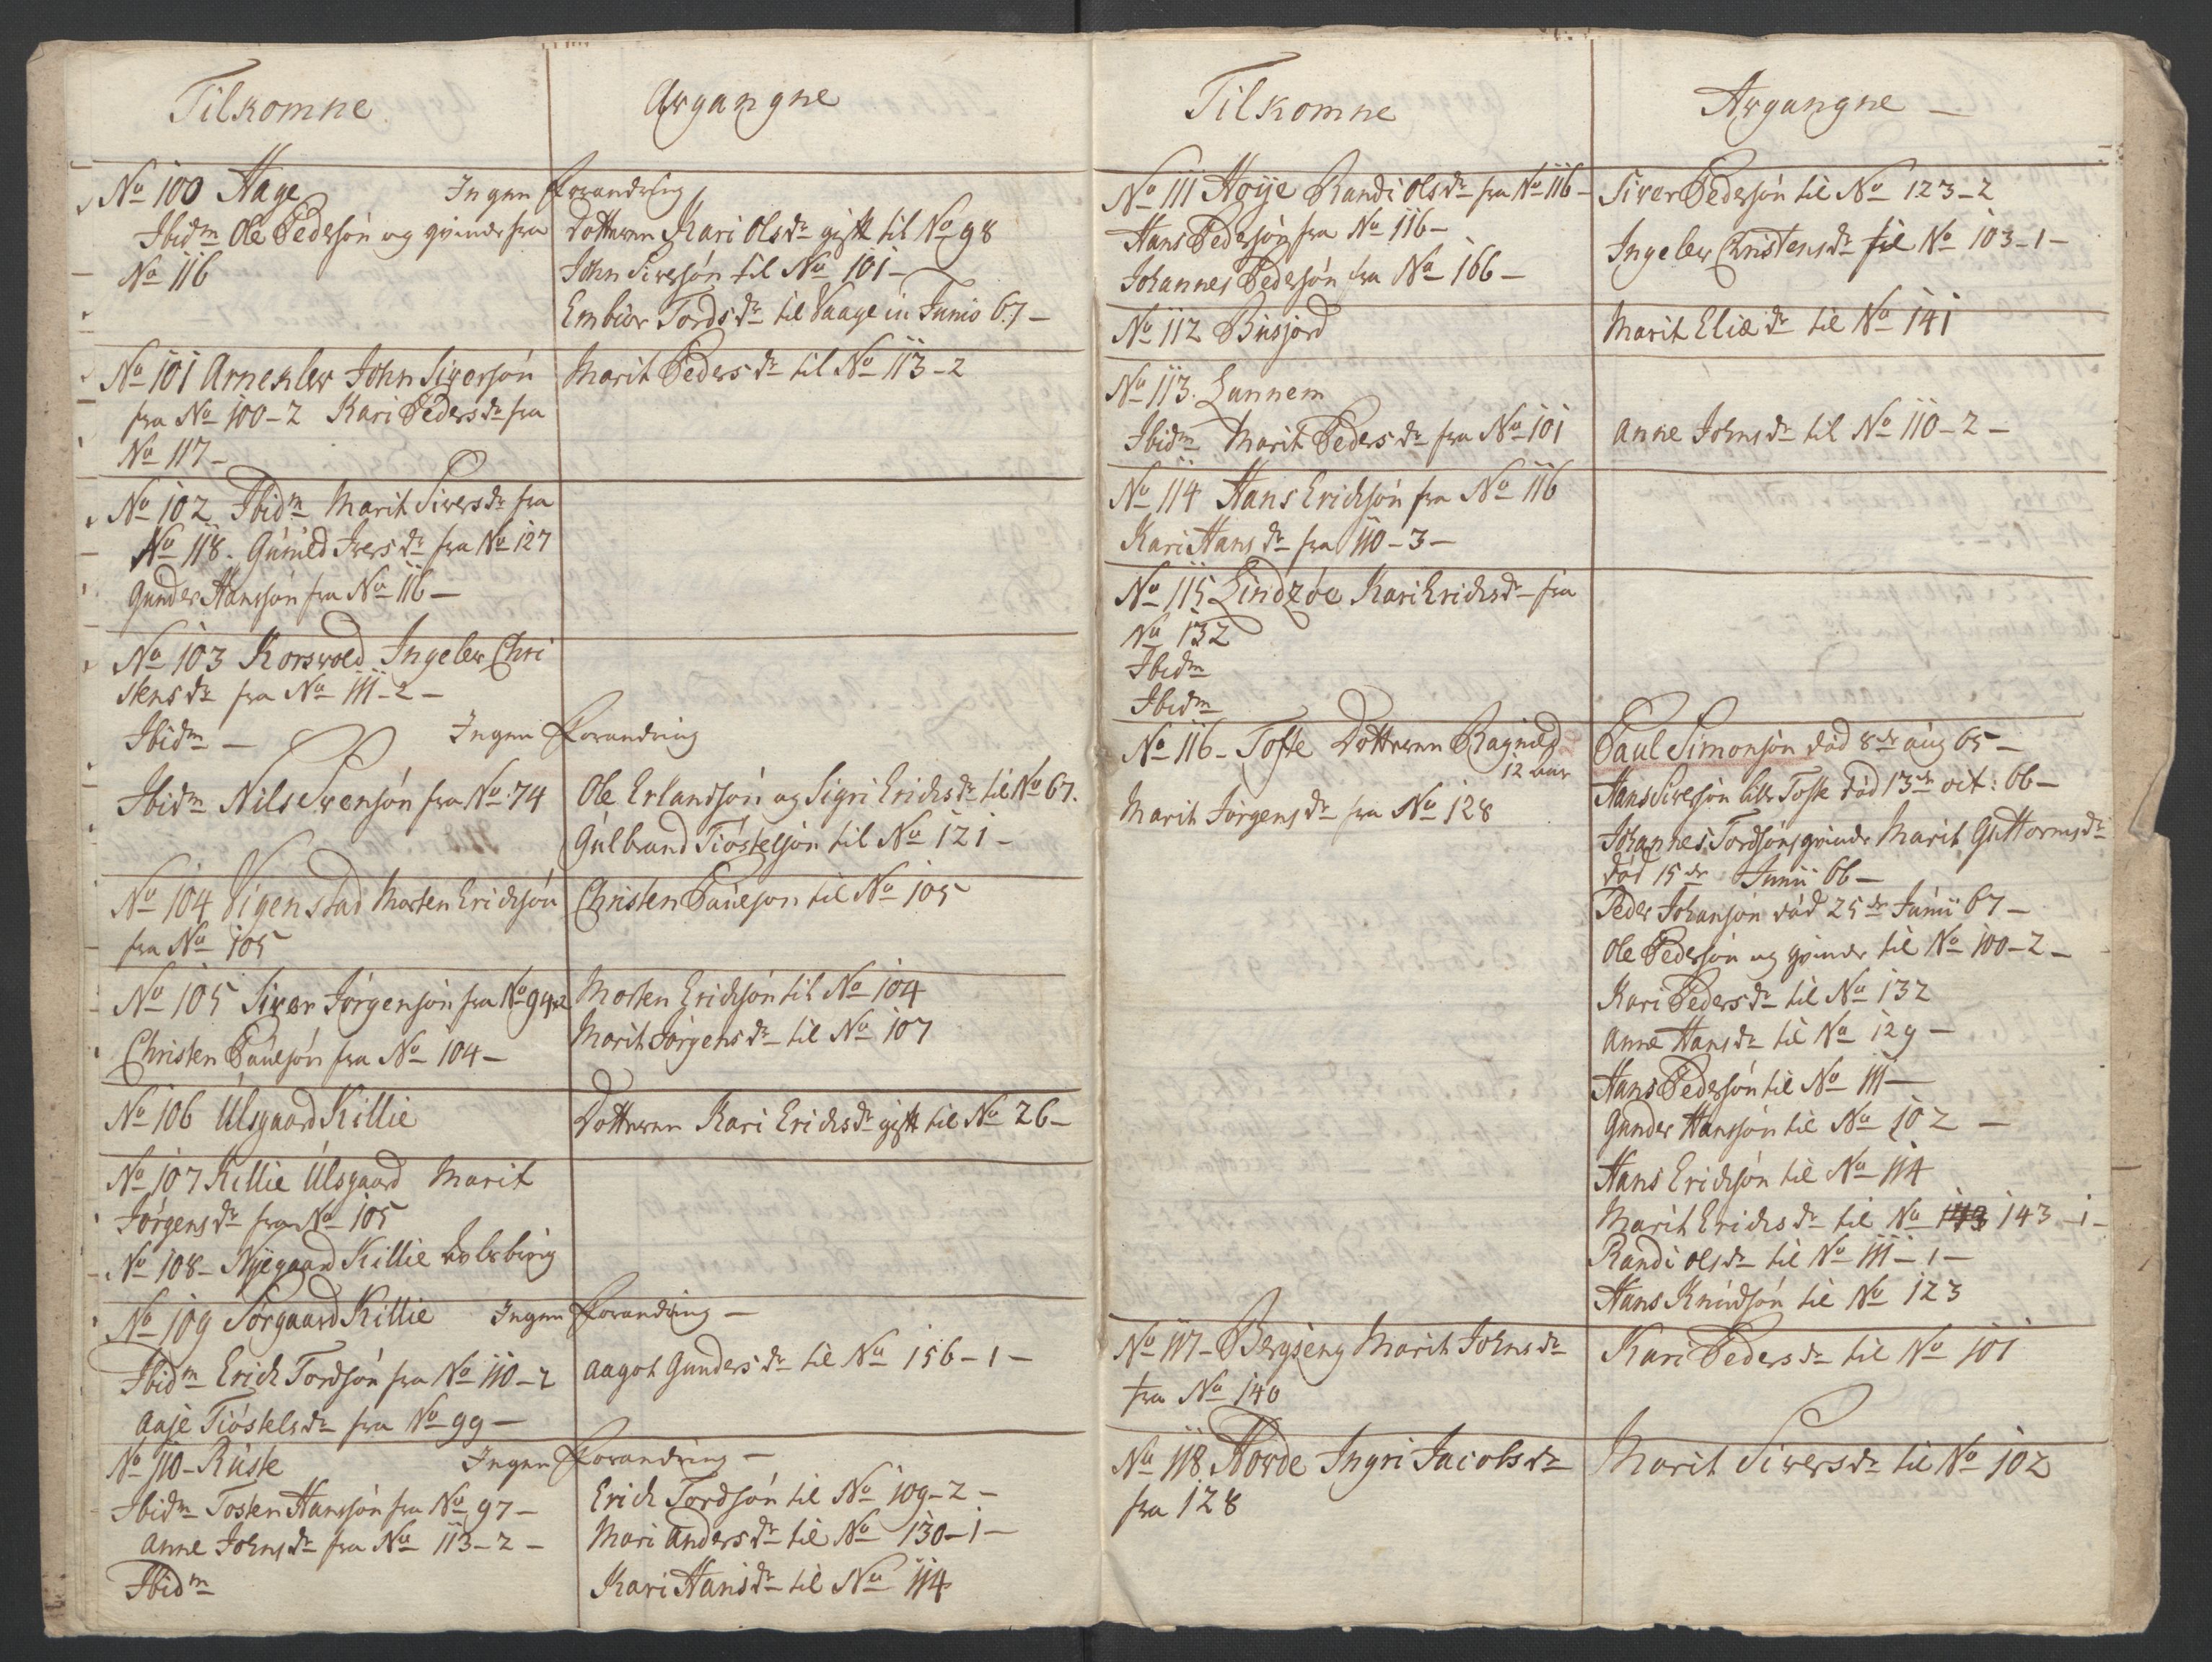 Tilkomne
Avgangne
No 100 Hage Ingen forandring
Ibidm Ole Pedersón og qvinde fra
No 116
Datteren Kari Olsdr gift til No 98
John Siversón til No 101 –
Embiør Tordsdr til Vaage in Junio 67 –
No 101 Arneklev John Siversón
fra No 100 – 2 Kari Pedersdr fra
No 117 –
Marit Pedersdr til No 113 – 2
No 102 Ibidm Marit Siversdr fra
No 118 – Gunild Iversdr fra No 127
Gunder Hansón fra No 116 –
No 103 Korsvold Ingelev Chri
stensdr fra No 111 – 2 –
Ibidm – Ingen forandring
Ibidm Nils Svensón fra No 74
Ole Erlandsón og Sigri Ericksdr til No 67.
Gulbrand Tiöstelsón til No 121 –
No 104 Vigenstad Morten Ericksón
fra No 105
Christen Paulson til No 105
No 105 Siver Jörgensón fra No 94-2
Christen Paulsón fra No 104 –
Morten Ericksón til No 104
Marit Jörgensdr til No 107
No 106 Ulsgaard Killie
Datteren Kari Ericksdr gift til No 26 –
No 107 Killie Ulsgaard Marit
Jörgensdr fra No 105
No 108 – Nÿegaard Killie
No 109 Sörgaard Killie Ingen forandring –
Ibidm Erick Tordsón fra No 110 – 2
Aase Tiöstelsdr fra No 99 –
Aagot Gundersdr til No 156 – 1 –
No 110 – Rúste Ingen forandring –
Ibidm Tosten Hansón fra No 97 –
Anne Johnsdr fra No 113 – 2 –
Ibidm
Erick Tordsón til No 109 – 2 –
Mari Andersdr til No 130 – 1 –
Kari Hansdr til No 114
Tilkomne
Avgangne –
No 111 Høÿe Randi Olsdr fra No 116 –
Hans Pedersón fra No 116 –
Johannes Pedersón fra No 166 –
Siver Pedersón til No 123 – 2
Ingelev Christensdr til No 103 – 1 –
No 112 Búsjord
Marit Eliædr til No 141
No 113. Lannem
Ibidm Marit Pedersdr fra No 101
Anne Johnsdr til No 110 – 2 –
No 114 Hans Ericksón fra No 116
Kari Hansdr fra 110 – 3 –
No 115 Lindzöe Kari Ericksdr fra
No 132
Ibidm
Ibidm
No 116 – Tofte Datteren Ragnild
12 aar
Marit Jörgensdr fra No 128
Paul Simonsón död 8de aug 65 –
Hans Siversón lille Tofte död 13de oct: 66 –
Johannes Tordsóns qvinde Marit Guttormsdr
död 15de Junii 66 –
Peder Johansón död 25de Junii 67 –
Ole Pedersón og qvinde til No 100 – 2 –
Kari Pedersdr til No 132
Anne Hansdr til No 129 –
Hans Pedersón til No 111 –
Gunder Hansón til No 102 –
Hans Ericksón til No 114
Marit Ericksdr til No 143 – 1 –
Randi Olsdr til No 111 – 1 –
Hans Knudsón til No 123
No 117 – Bergseng Marit Johnsdr
fra No 140
Kari Pedersdr til No 101
No 118. Hovde Ingri Jacobsdr
fra 128
Marit Siversdr til No 102